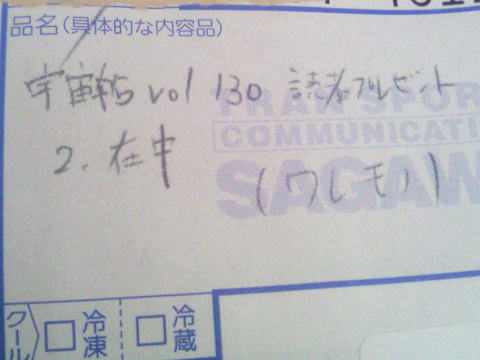 品名(具体的な内容品)
宇宙船 vol 130 読者プレゼント
TRANSPOR
COMMUNICATI
2. 在中
SAGAW
(ワレモノ)
クール
冷凍
冷蔵